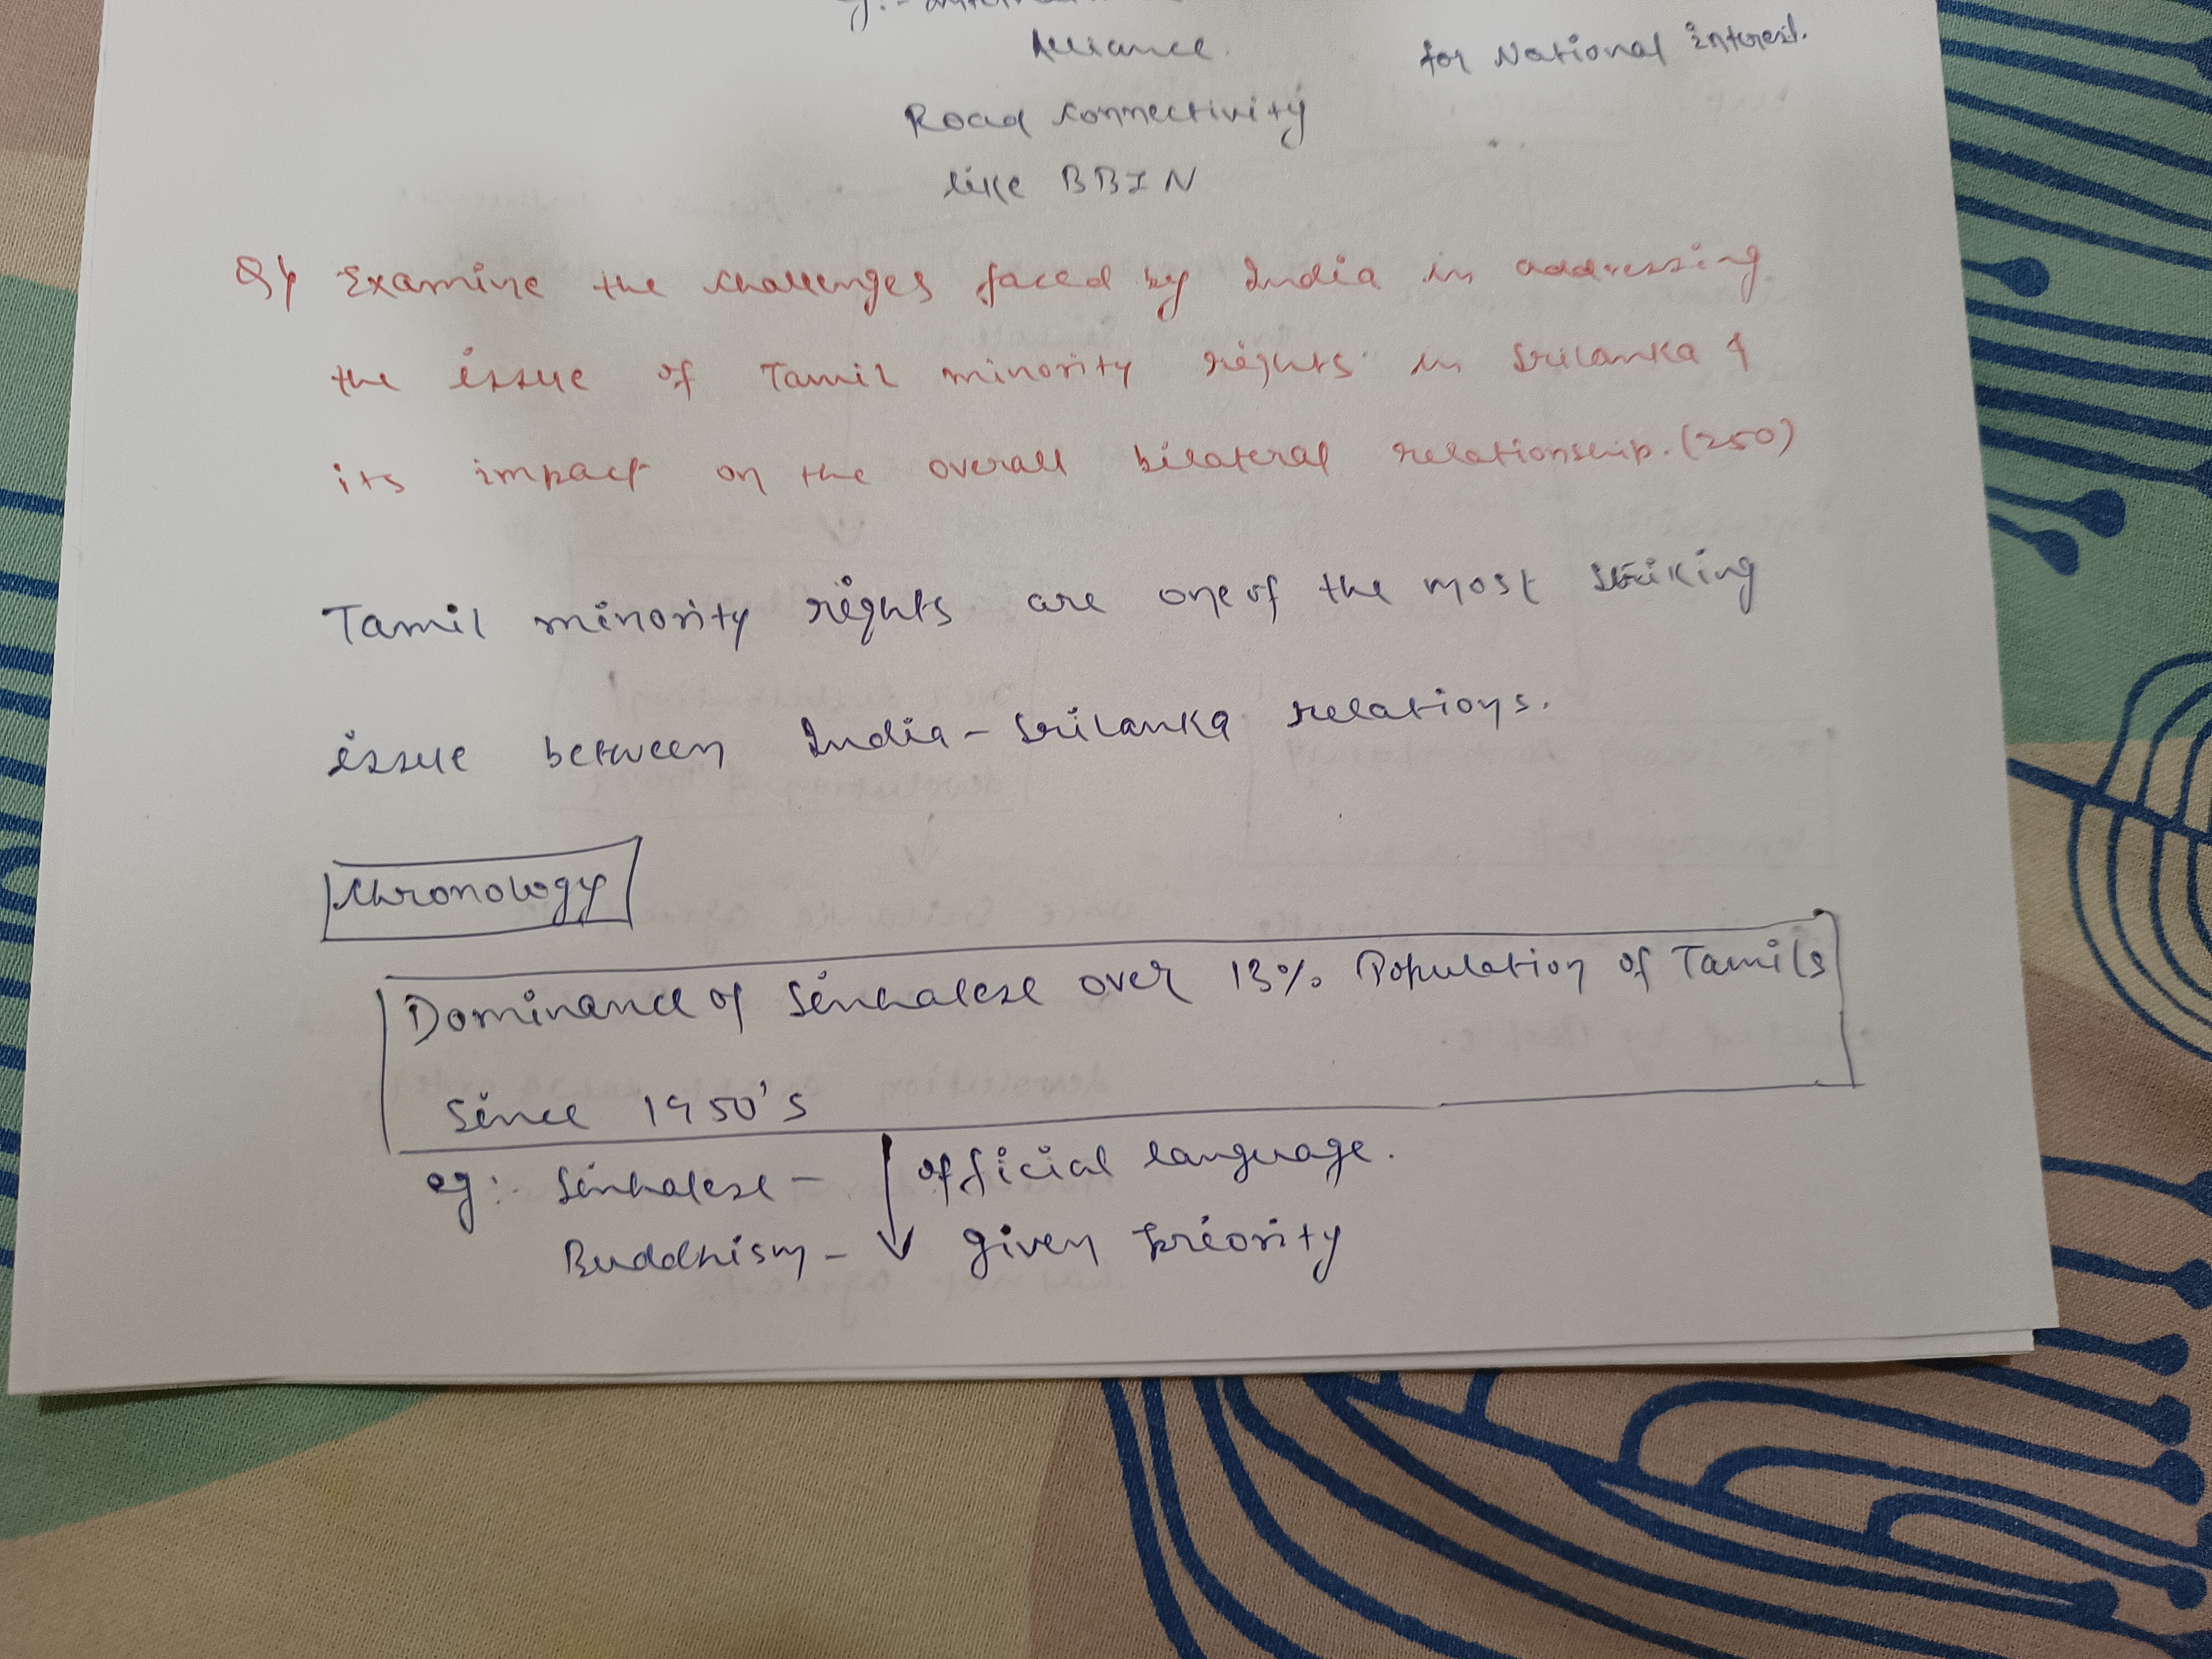 Alliance.
for National interest.
Road connectivity
like BBIN
Q) Examine the challenges faced by India in addressing
the issue of Tamil minority rights in Srilanka &
its impact on the overall bilateral relationship. (250)
Tamil minority rights are one of the most striking
issue between India - Srilanka relations.
Chronology
Dominance of Sinhalese over 13% Population of Tamils
since 1950's
eg:- Sinhalese - official language.
Buddhism - given priority